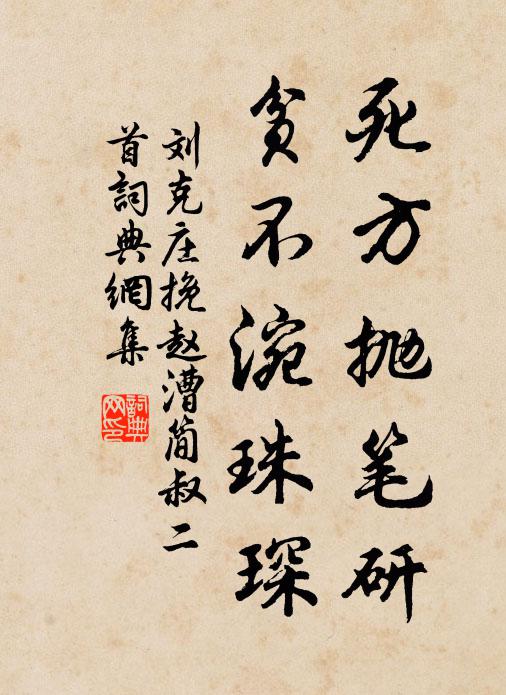 死方抛笔研
贫不涴珠琛
刘克庄挽赵漕简叔二
首詞典網集
詞典網印